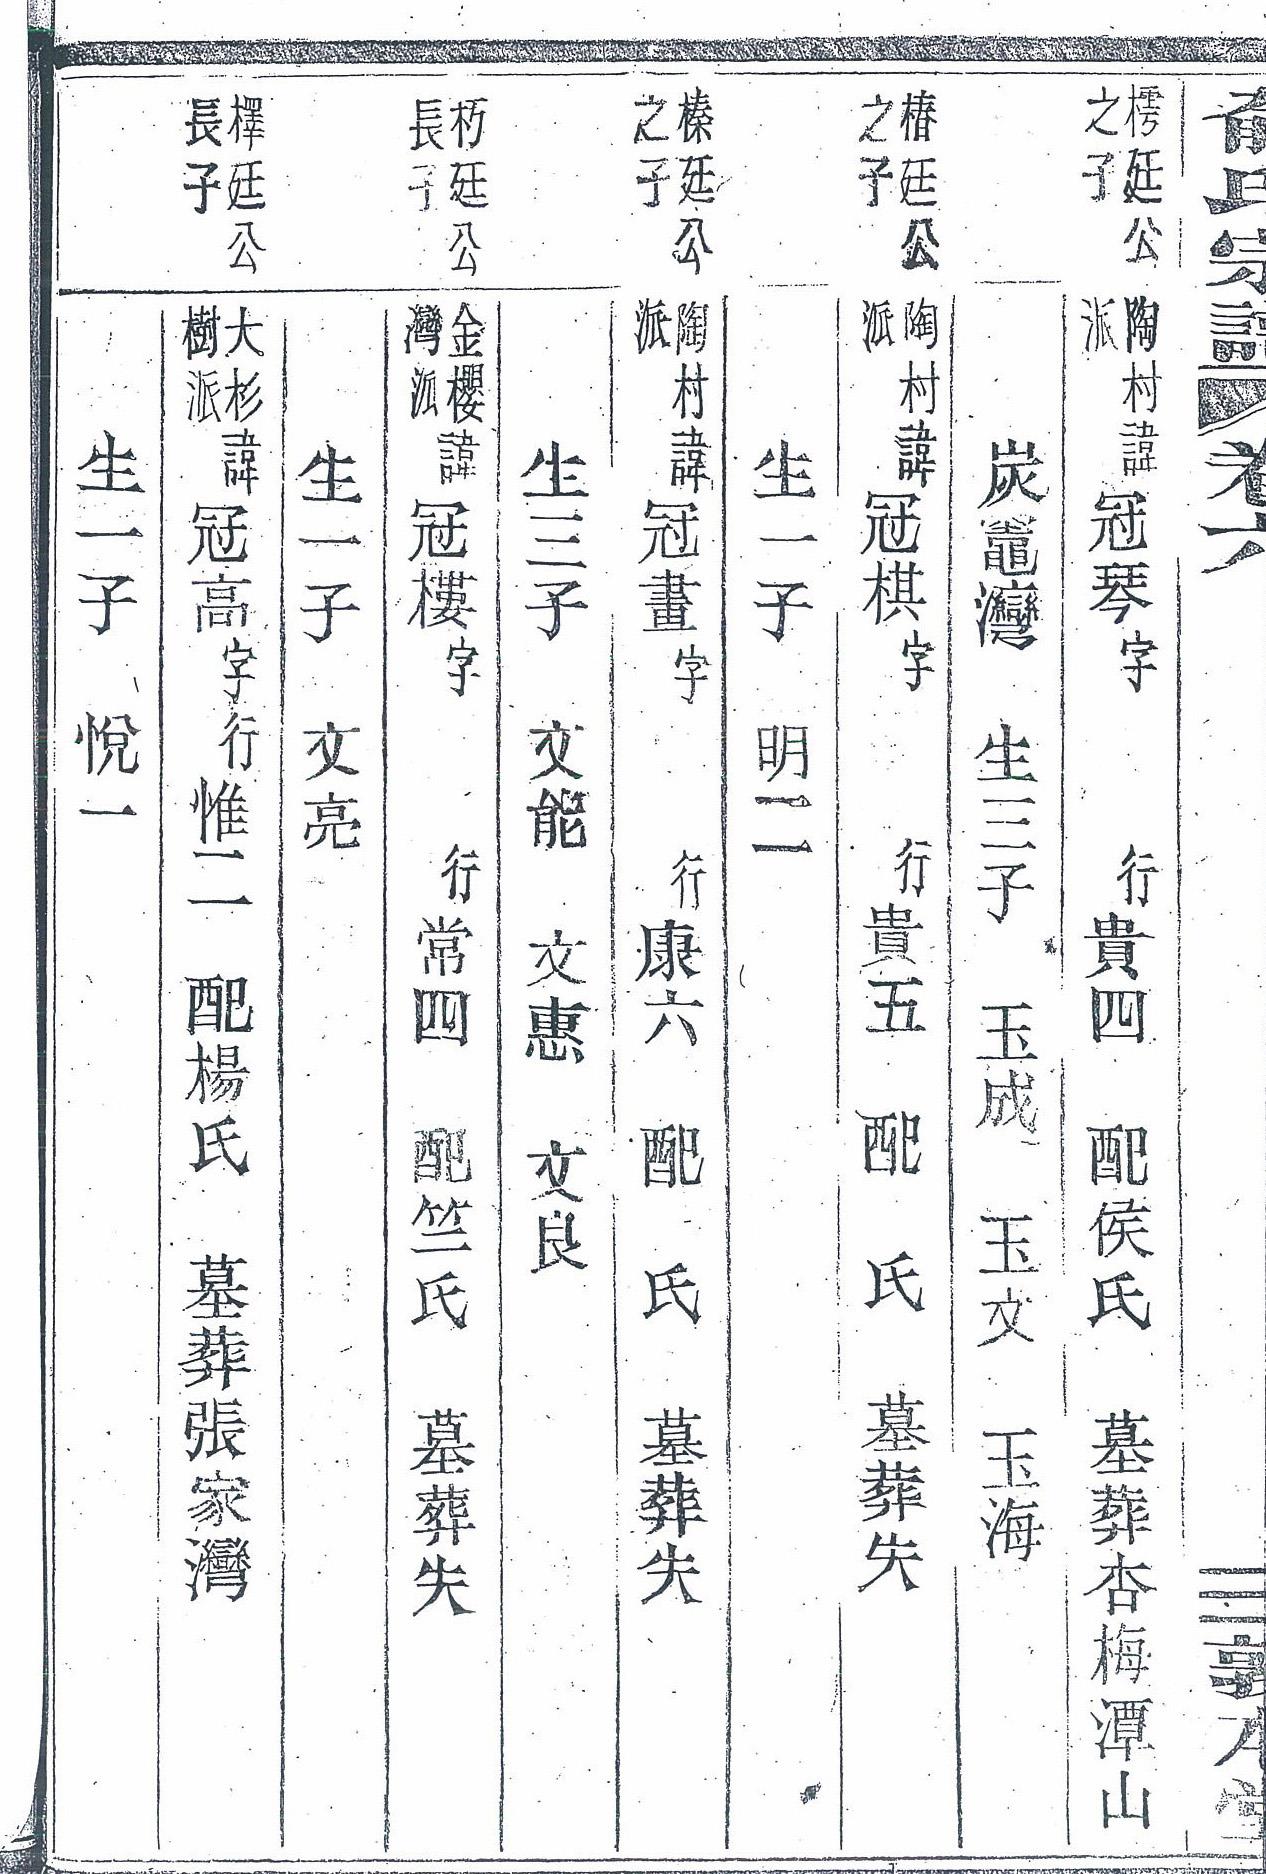 俞氏宗譜 卷六 三 敦本堂
樗廷公之子
陶村派諱冠琴字 行貴四 配侯氏 墓葬杏梅潭山
炭竈灣 生三子 玉成 玉文 玉海
椿廷公之子
陶村派諱冠棋字 行貴五 配 氏 墓葬失
生一子 明二
榛廷公之子
陶村派諱冠畫字 行康六 配 氏 墓葬失
生三子 文能 文惠 文良
朽廷公長子
金櫻灣派諱冠樓字 行常四 配竺氏 墓葬失
生一子 文亮
檡廷公長子
大杉樹派諱冠高字 行惟二 配楊氏 墓葬張家灣
生一子 悅一